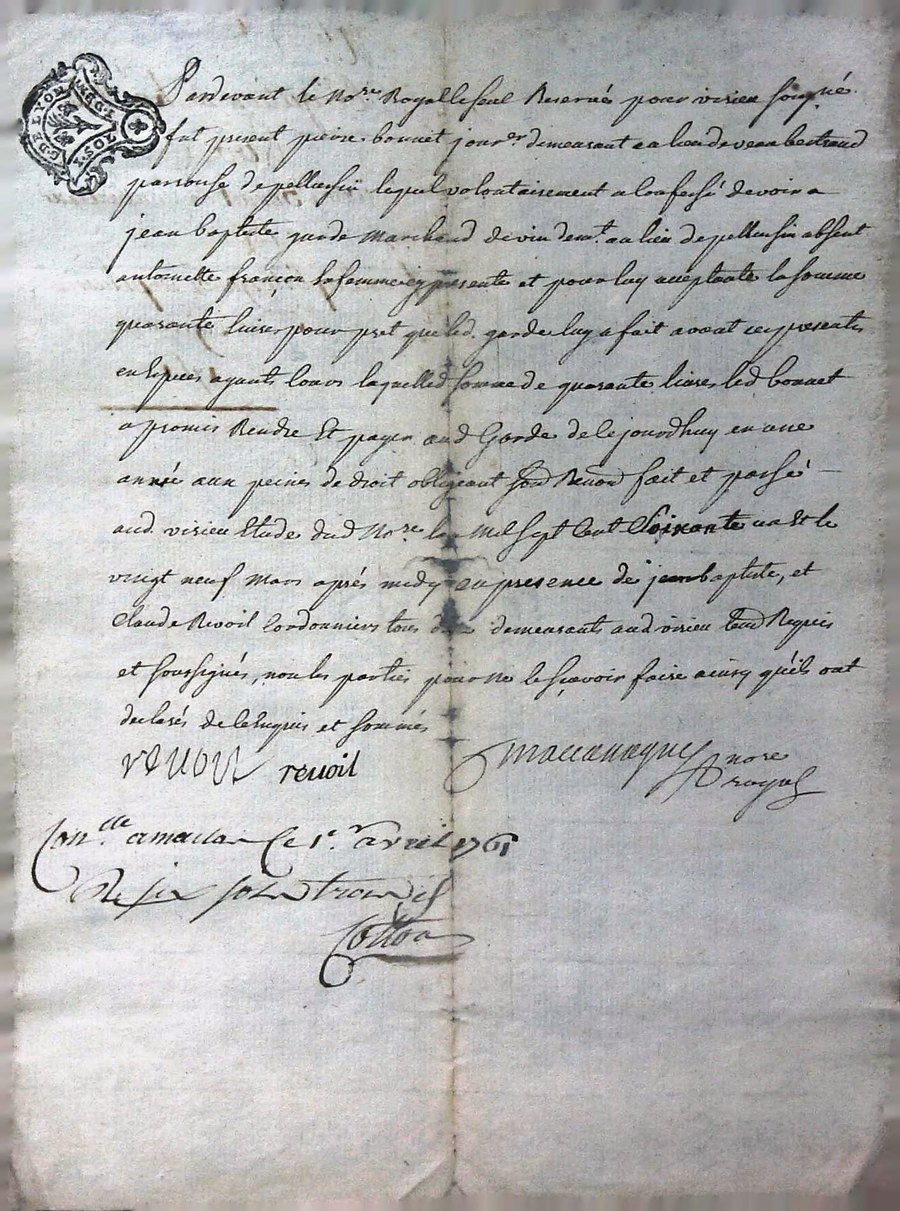 DE LYON
Pardevant le No.re Royal le seul Reservé pour virieu soigné
fut present pierre bonnet jour.er demeurant au lieu de veau bertrand
parroisse de pellussin lequel volontairement a confessé devoir a
jean baptiste garde Marchand de vin dem.t au lieu de pellussin absent
antoinette françon sa femme cy presente et pour luy acceptante la somme
quarante livres pour pret que led. garde luy a fait avant ces presentes
en Especes ayants Cours laquelle d. somme de quarante livres led bonnet
a promis Rendre Et payer aud Garde de Cejourdhuy en une
année aux peines de droit obligeant sond Renon fait et passé
aud virieu Etude dud No.re le Mil sept Cent Soixante un Et le
vingt neuf Mars aprés midy en presence de jean baptiste, et
Claude Revoil Cordonniers tous deux demeurants aud virieu tem Requis
et soussignés, non les parties pour ne le sçavoir faire ainsy qu'ils ont
declarés de ce Enquis et sommés
revoil revoil nore
royal
Con.lle a maclas Ce 1.r avril 1761
R six sols trois d
Cotton